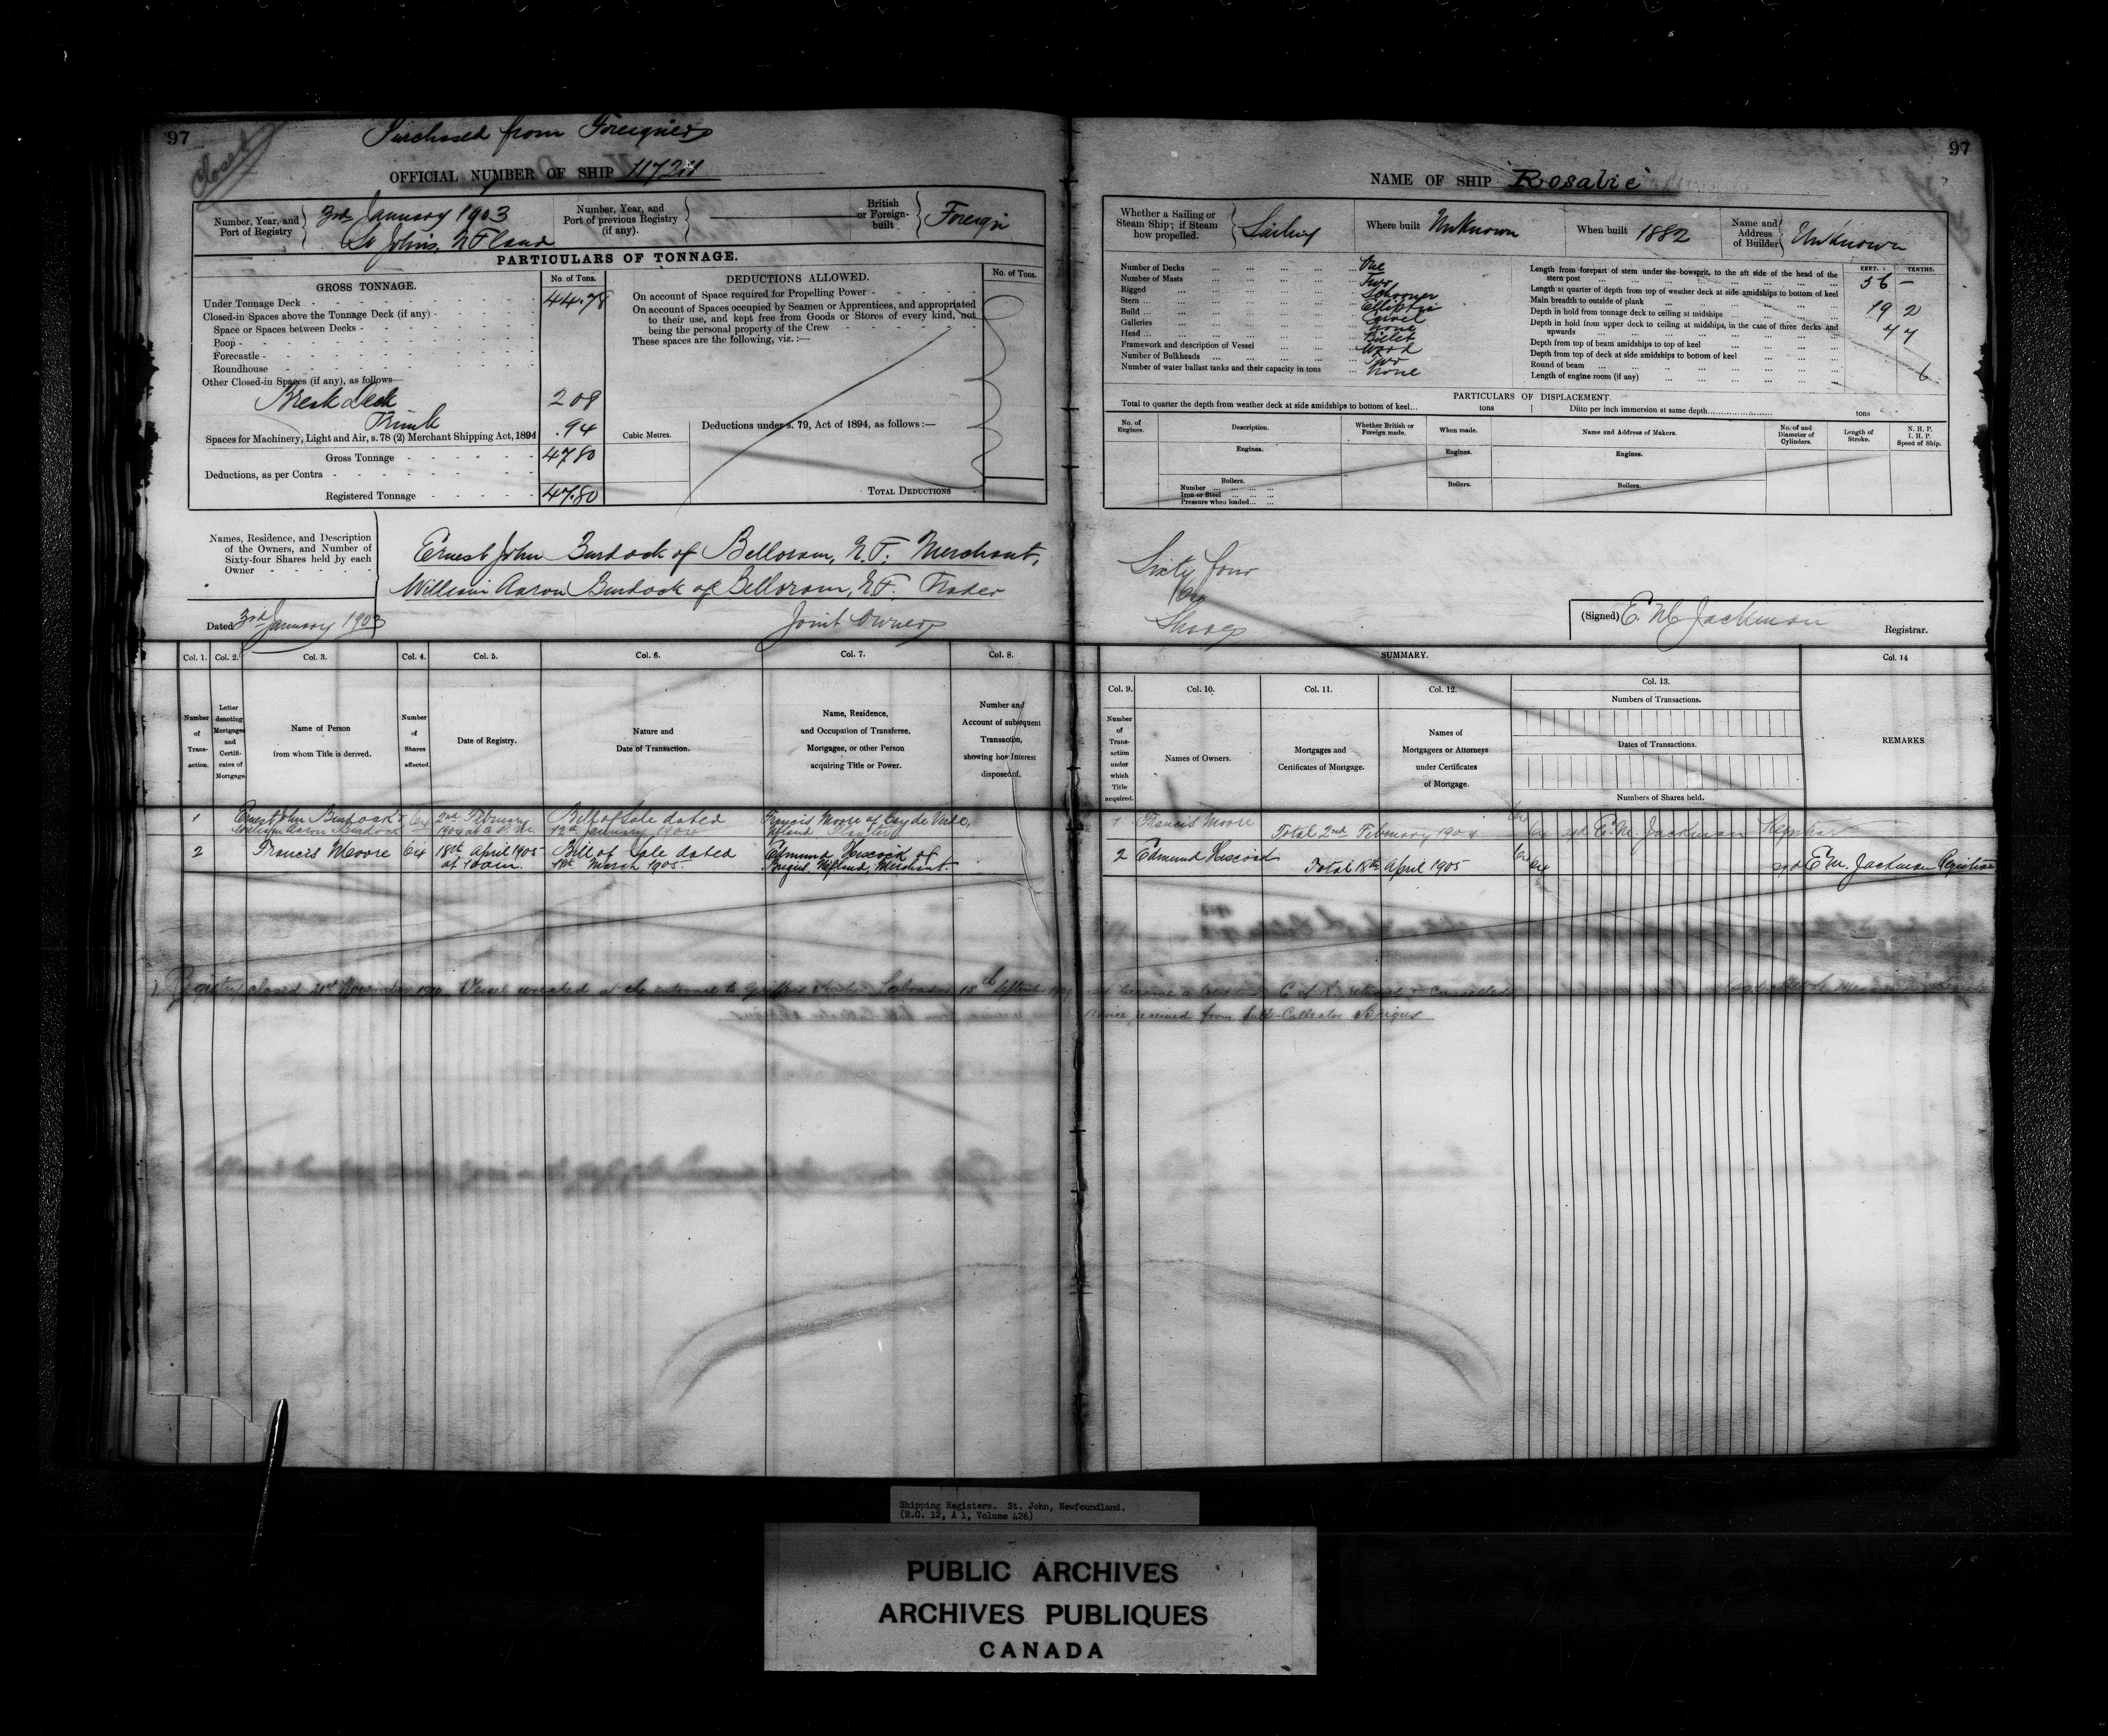 97
Closed
Purchased from Foreigners
OFFICIAL NUMBER OF SHIP
Number, Year, and Port of Registry
3rd January 1903
St Johns, NFland
Number, Year, and Port of previous Registry (if any).
British or Foreign-built
Foreign
PARTICULARS OF TONNAGE.
GROSS TONNAGE.
No. of Tons.
Under Tonnage Deck 44.78
Closed-in Spaces above the Tonnage Deck (if any)
Space or Spaces between Decks
Poop
Forecastle
Roundhouse
Other Closed-in Spaces (if any), as follows
Break Deck 2 08
Trunk .94
Spaces for Machinery, Light and Air, s. 78 (2) Merchant Shipping Act, 1894
Gross Tonnage 47 80
Deductions, as per Contra
Registered Tonnage 47.80
DEDUCTIONS ALLOWED.
No. of Tons.
On account of Space required for Propelling Power
On account of Spaces occupied by Seamen or Apprentices, and appropriated
to their use, and kept free from Goods or Stores of every kind, not
being the personal property of the Crew
These spaces are the following, viz. :—
Cubic Metres.
Deductions under s. 79, Act of 1894, as follows :—
TOTAL DEDUCTIONS
Names, Residence, and Description
of the Owners, and Number of
Sixty-four Shares held by each
Owner
Ernest John Burdock of Belloram, N.F. Merchant,
William Aaron Burdock of Belloram, N.F. Trader
Joint Owners
Dated 3rd January 1903
Col. 1. Col. 2. Col. 3. Col. 4. Col. 5. Col. 6. Col. 7. Col. 8.
Number of Transaction.
Letter denoting Mortgages and Certificates of Mortgage.
Name of Person from whom Title is derived.
Number of Shares affected.
Date of Registry.
Nature and Date of Transaction.
Name, Residence, and Occupation of Transferee, Mortgagee, or other Person acquiring Title or Power.
Number and Account of subsequent Transaction, showing how Interest disposed of.
1 Ernest John Burdock & William Aaron Burdock 64 2nd February 1904 Bill of Sale dated 12th January 1904 Francis Moore of Bay de Verde, Nfland
2 Francis Moore 64 18th April 1905 at 10 a.m. Bill of Sale dated March 1905. Edmund Hiscock of Brigus, Nfland, Merchant.
Registry closed 21st November 1910. Vessel wrecked at the entrance to Harbor Labrador 15th September
97
NAME OF SHIP Rosalie
Whether a Sailing or Steam Ship; if Steam how propelled.
Sailing
Where built Unknown
When built 1882
Name and Address of Builder
Unknown
Number of Decks One
Number of Masts Two
Rigged Schooner
Stern Elliptic
Build Carvel
Galleries None
Head Billet
Framework and description of Vessel Wood
Number of Bulkheads Two
Number of water ballast tanks and their capacity in tons None
FEET. TENTHS.
Length from forepart of stem under the bowsprit, to the aft side of the head of the stern post 56 —
Length at quarter of depth from top of weather deck at side amidships to bottom of keel
Main breadth to outside of plank 19 2
Depth in hold from tonnage deck to ceiling at midships 7 7
Depth in hold from upper deck to ceiling at midships, in the case of three decks and upwards
Depth from top of beam amidships to top of keel
Depth from top of deck at side amidships to bottom of keel
Round of beam 6
Length of engine room (if any)
PARTICULARS OF DISPLACEMENT.
Total to quarter the depth from weather deck at side amidships to bottom of keel... tons
Ditto per inch immersion at same depth... tons
No. of Engines.
Description.
Whether British or Foreign made.
When made.
Name and Address of Makers.
No. of and Diameter of Cylinders.
Length of Stroke.
N. H. P. I. H. P. Speed of Ship.
Engines. Engines. Engines.
Boilers. Boilers. Boilers.
Number
Iron or Steel
Pressure when loaded
Sixty four
64
Shares
(Signed) E M Jackman
Registrar.
SUMMARY.
Col. 9. Col. 10. Col. 11. Col. 12. Col. 13. Col. 14
Number of Transaction under which Title acquired.
Names of Owners.
Mortgages and Certificates of Mortgage.
Names of Mortgagees or Attorneys under Certificates of Mortgage.
Numbers of Transactions.
Dates of Transactions.
Numbers of Shares held.
REMARKS
1 Francis Moore Total 2nd February 1904 64 sgd E. M. Jackman Registrar
2 Edmund Hiscock Total 18th April 1905 64 sgd E M. Jackman Registrar
C of R returned & cancelled
Advice received from Sub-Collector Brigus
Shipping Registers. St. John, Newfoundland.
(R.G. 12, A 1, Volume 426)
PUBLIC ARCHIVES
ARCHIVES PUBLIQUES
CANADA